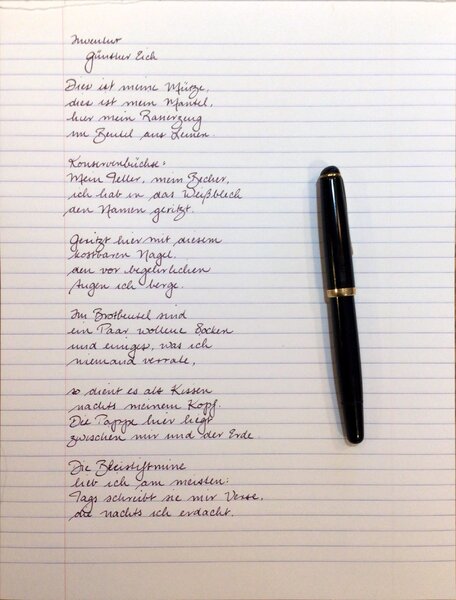 Inventur
Günther Eich
Dies ist meine Mütze,
dies ist mein Mantel,
hier mein Rasierzeug
im Beutel aus Leinen.
Konservenbüchse:
Mein Teller, mein Becher,
ich hab in das Weißblech
den Namen geritzt.
Geritzt hier mit diesem
kostbaren Nagel,
den vor begehrlichen
Augen ich berge.
Im Brotbeutel sind
ein Paar wollene Socken
und einiges, was ich
niemand verrate,
so dient es als Kissen
nachts meinem Kopf.
Die Pappe hier liegt
zwischen mir und der Erde.
Die Bleistiftmine
lieb ich am meisten:
Tags schreibt sie mir Verse,
die nachts ich erdacht.